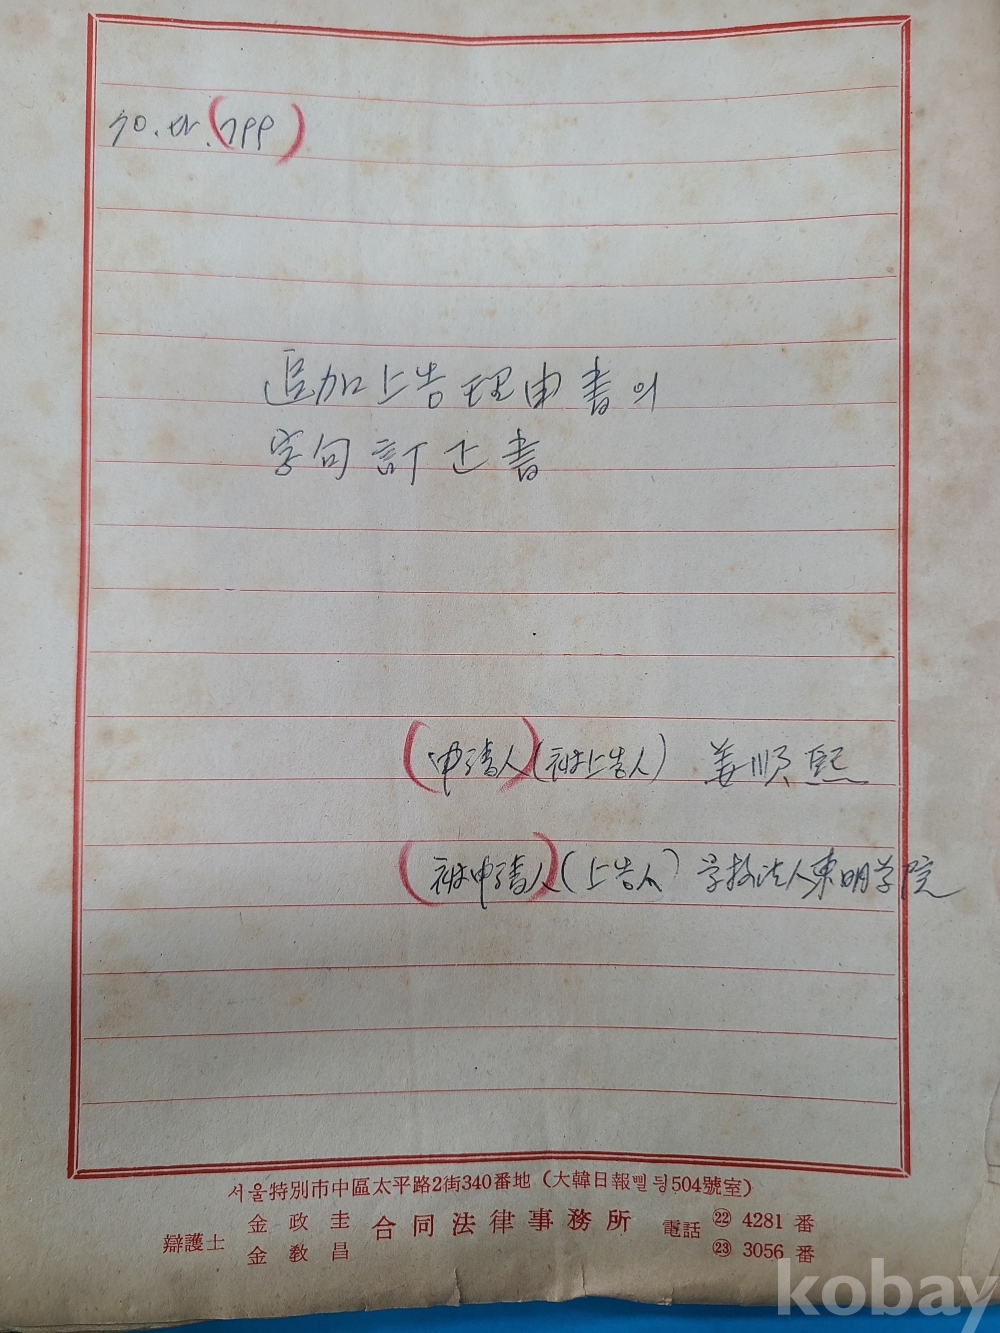 70. 다. (799)
追加上告理由書의
字句訂正書
(申請人)(被上告人) 姜順熙
(被申請人)(上告人) 学校法人東明学院
서울特別市中區太平路2街340番地 (大韓日報삘딍504號室)
辯護士 金政圭 金敎昌 合同法律事務所 電話 ㉒ 4281 番 ㉓ 3056 番
kobay